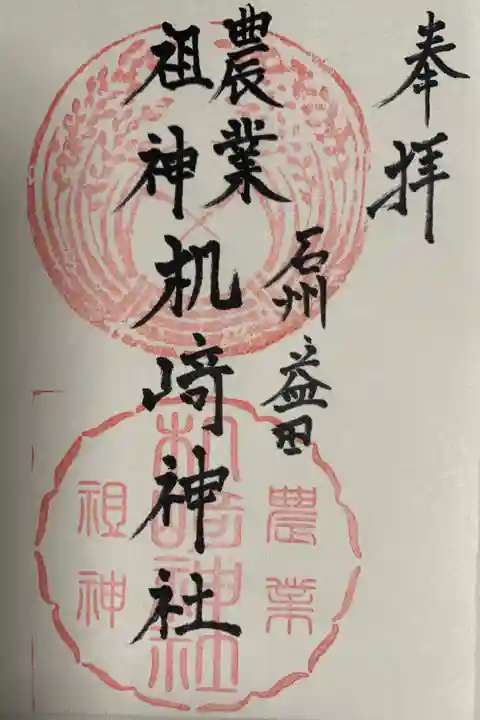 奉拝
石州益田
農業
祖神
机崎神社
農業
机崎神社
祖神